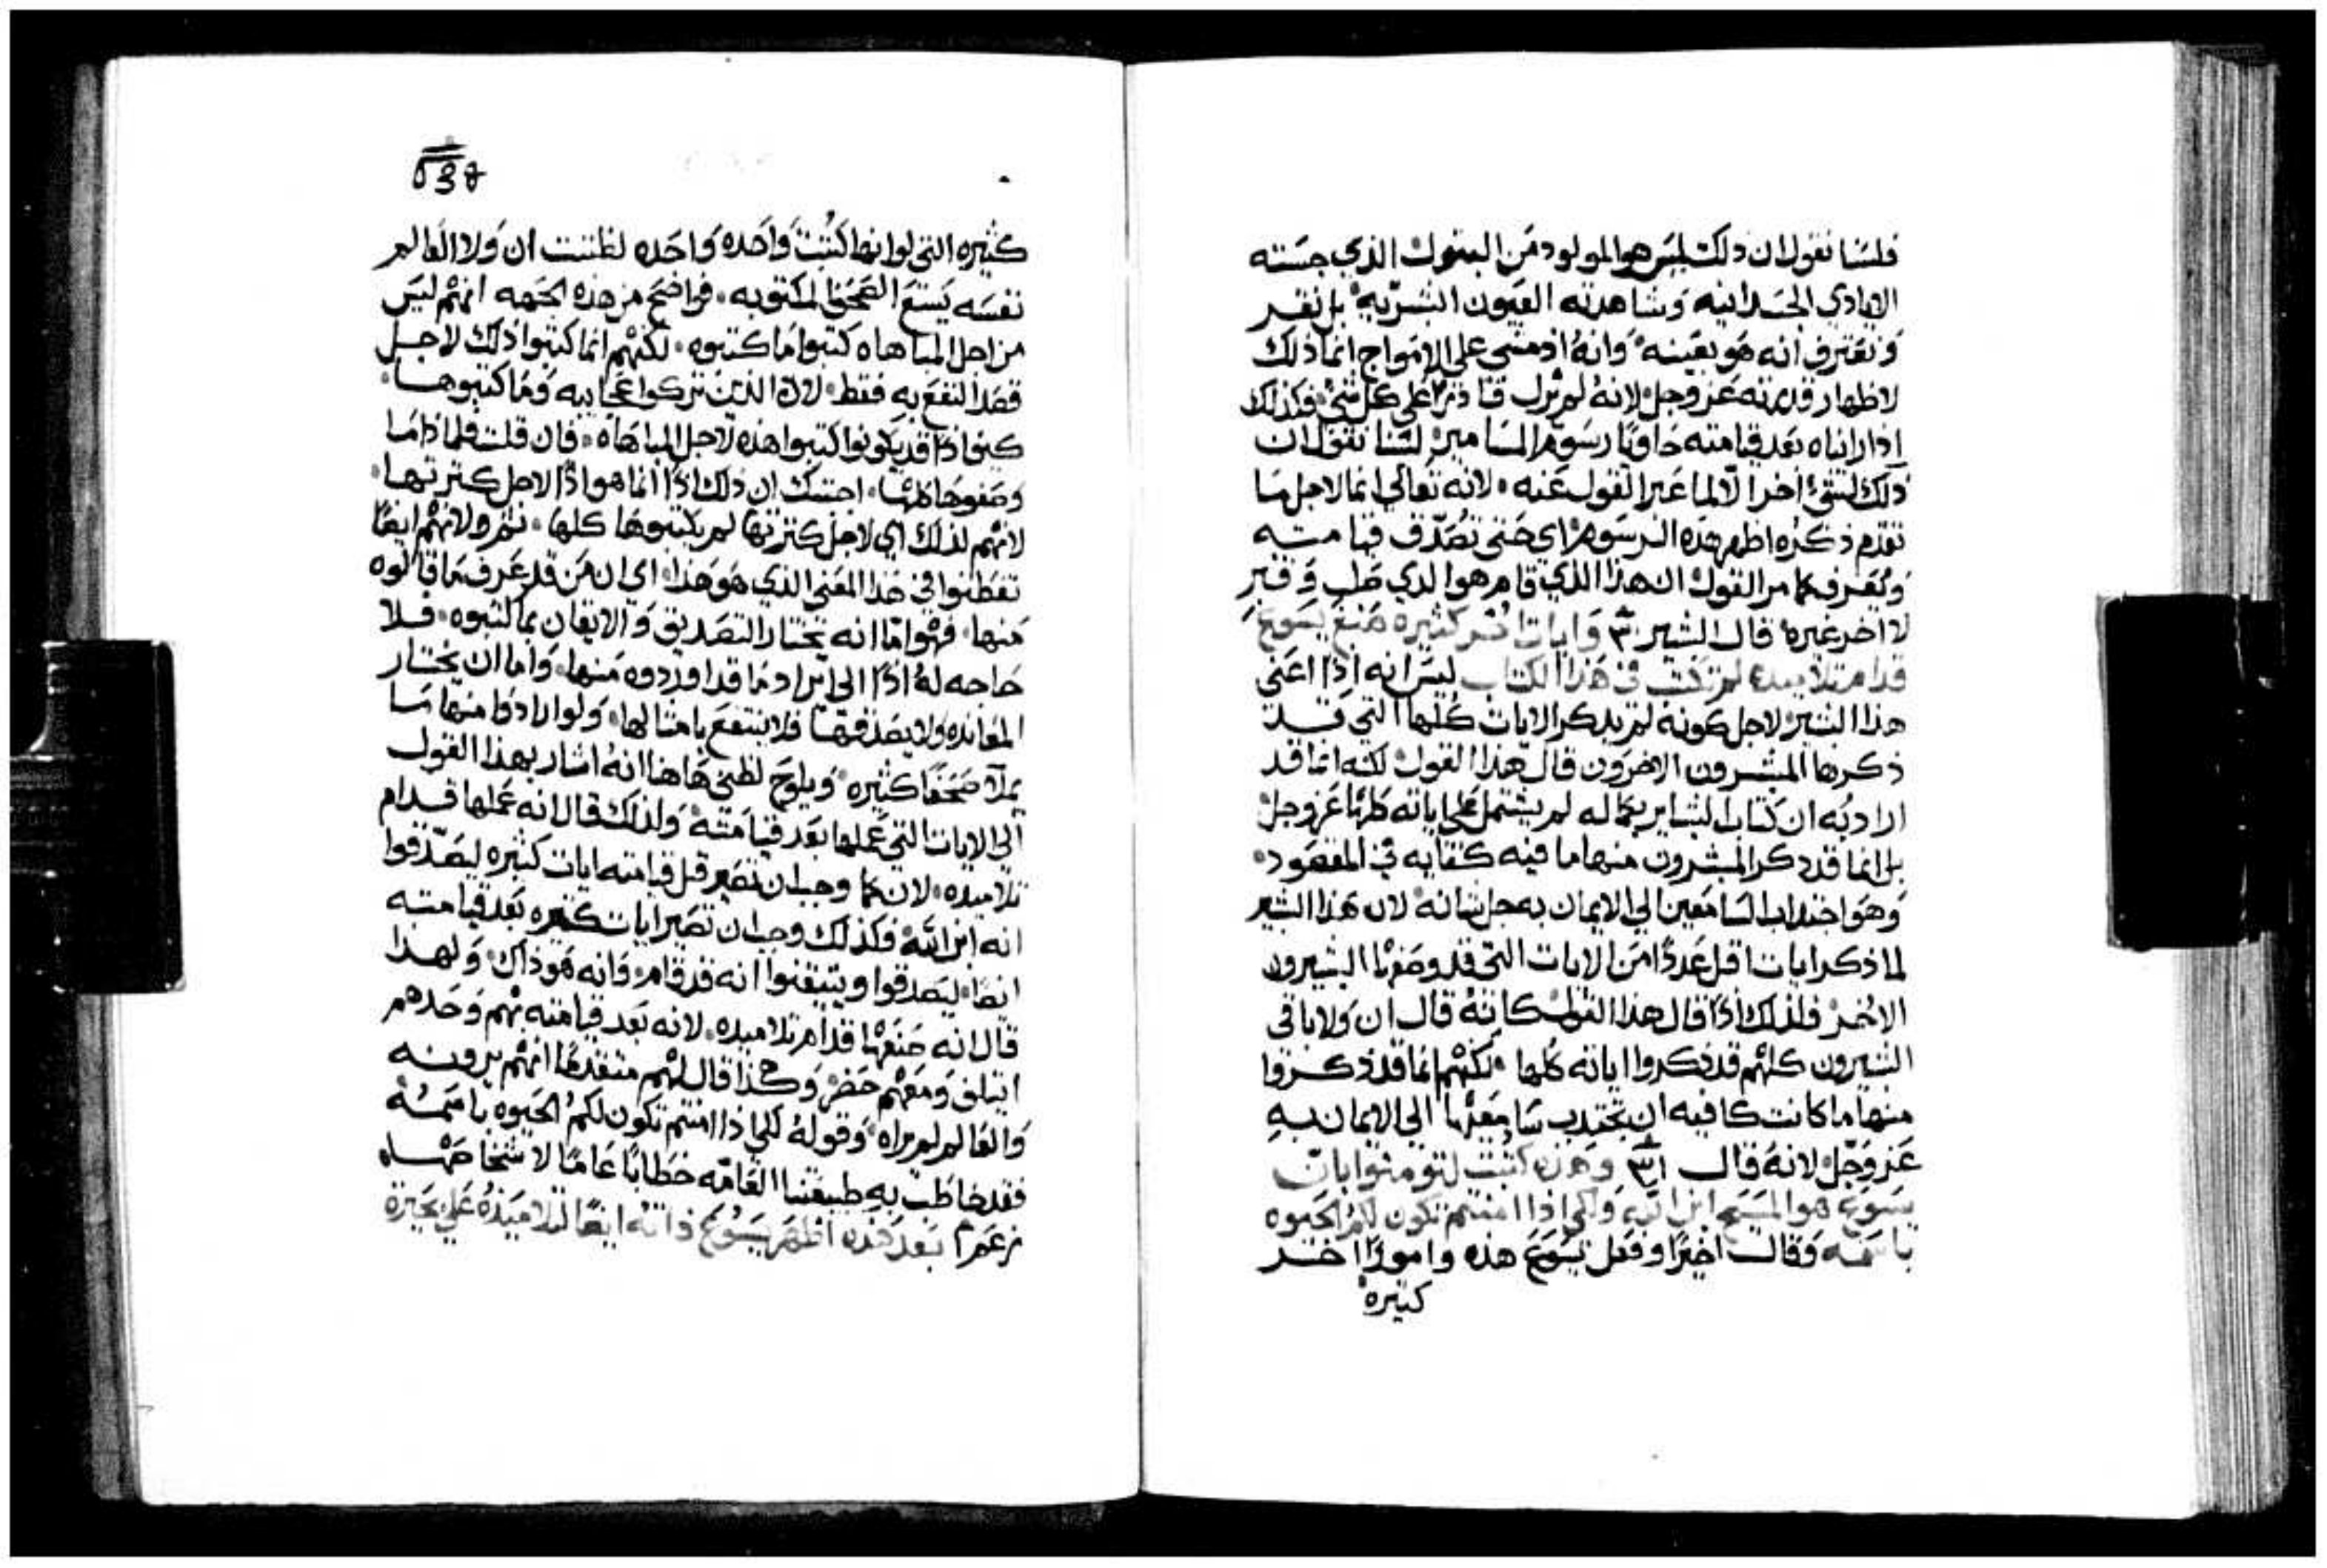 فلسنا نقول ان ذلك ليس هو المولود من البتول الذي جسته
الايادي الجسدانيه وشاهدته العيون البشريه بل نقر
ونعترف انه هو بعينه وانه اذ مشي على الامواج انما ذلك
لاظهار قدرته عز وجل لانه لم يزل قادرا على كل شي فكذلك
اذا راناه بعد قيامته حاويا رسوم المسامير لسنا نقول ان
ذلك لشي اخر الا لما عبر القول عنه لانه تعالى انما لاجل ما
تقدم ذكره اظهر هذه الرسوم اي حتى تصدق قيامته
ويعرف كما مر القول ان هذا الذي قام هو الذي صلب وقبر
لا اخر غيره قال البشير وايات اخر كثيره صنع يسوع
قدام تلاميذه لم تكتب في هذا الكتاب ليس انه اذا اعني
هذا البشير لاجل كونه لم يذكر الايات كلها التي قد
ذكرها المبشرون الاخرون قال هذا القول لكنه انما قد
اراد به ان كتاب البشاير بكماله لم يشتمل على اياته كلها عز وجل
بل انما قد ذكر المبشرون منها ما فيه كفايه في المقصود
وهو اجتذاب السامعين الي الايمان به جل شانه لان هذا البشير
لما ذكر ايات اقل عددا من الايات التي قد وصفها البشيرون
الاخر فلذلك اذا قال هذا القول كانه قال ان ولا باقي
البشيرون كلهم قد ذكروا اياته كلها لكنهم انما قد ذكروا
منها ما كانت كافيه ان تجتذب سامعيها الي الايمان به
عز وجل لانه قال وهذه كتبت لتومنوا بان
يسوع هو المسيح ابن الله ولكي اذا امنتم تكون لكم الحيوه
باسمه وقال اخيرا وفعل يسوع هذه وامورا اخر
كثيره
كثيره التي لو انها كتبت واحده واحده لظننت ان ولا العالم
نفسه يسع الصحف المكتوبه فواضح من هذه الجهه انهم ليس
من اجل المباهاه كتبوا ما كتبوه لكنهم انما كتبوا ذلك لاجل
قصد النفع به فقط لان الذين تركوا عجايبه وما كتبوها
كيف اذا قد يكونوا كتبوا هذه لاجل المباهاه فان قلت فلماذا ما
وصفوها كلها اجبتك ان ذلك اذا انما هو اذا لاجل كثرتها
لانهم لذلك اي لاجل كثرتها لم يكتبوها كلها ثم ولانهم ايضا
تفطنوا في هذا المعني الذي هو هذا اي ان من قد عرف ما قالوه
منها فهو اما انه يختار التصديق والايقان بما كتبوه فلا
حاجه له اذا الى ايراد ما قد اوردوه منها واما ان يختار
المعانده ولا يصدقها فلا ينتفع بامثالها ولو ارادوا منها ما
يملا صحفا كثيره ويلوح لظني هاهنا انه اشار بهذا القول
الي الايات التي عملها بعد قيامته ولذلك قال انه عملها قدام
تلاميذه لان كما وجب ان تصير قبل قيامته ايات كثيره ليصدقوا
انه ابن الله فكذلك وجب ان تصير ايات كثيره بعد قيامته
ايضا ليصدقوا ويتيقنوا انه قد قام وانه هو ذاك ولهذا
قال انه صنعها قدام تلاميذه لانه بعد قيامته بهم وحدهم
ايتلف ومعهم حضر وهكذا قال لهم متقدما انهم يرونه
والعالم لم يراه وقوله لكي اذا امنتم تكون لكم الحيوه باسمه
فقد خاطب به طبيعتنا العامه خطابا عاما لا شخصا
بعد هذه اظهر يسوع ذاته ايضا لتلاميذه على بحيرة